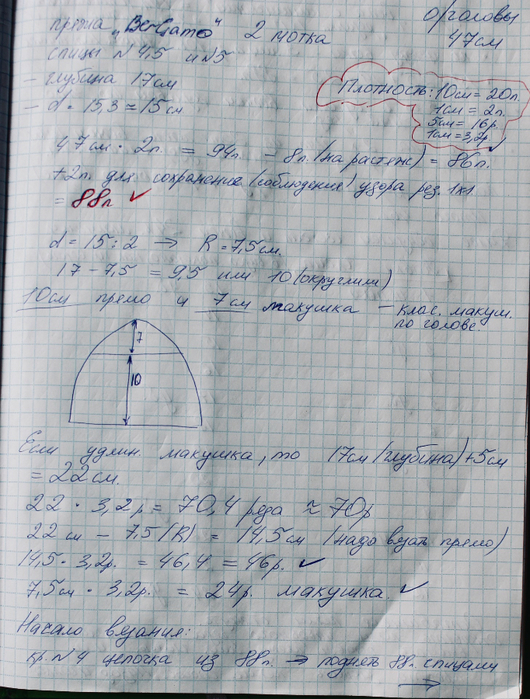 пряжа „BeGamo" 2 мотка
о/головы
47см
спицы №4,5 и №5
– глубина 17см
– d = 15,3 ≈ 15см
Плотность: 10см = 20п.
1см = 2п.
5см = 16р.
1см = 3,2р.
47см · 2п. = 94п. – 8п. (на растяж) = 86п.
+2п. для сохранение (соблюдение) узора рез. 1х1
= 88п ✓
d = 15 : 2 → R = 7,5см.
17 – 7,5 = 9,5 или 10 (округлили)
10см прямо и 7см макушка – клас. макуш.
по голове.
7
10
Если удлин. макушка, то 17см (глубина) + 5см
= 22см.
22 · 3,2р = 70,4 ряда ≈ 70р
22см – 7,5 (R) = 14,5см (надо вязать прямо)
14,5 · 3,2р. = 46,4 = 46р. ✓
7,5см · 3,2р. = 24р. макушка. ✓
Начало вязания:
кр. №4 цепочка из 88п → поднять 88п. спицами
→